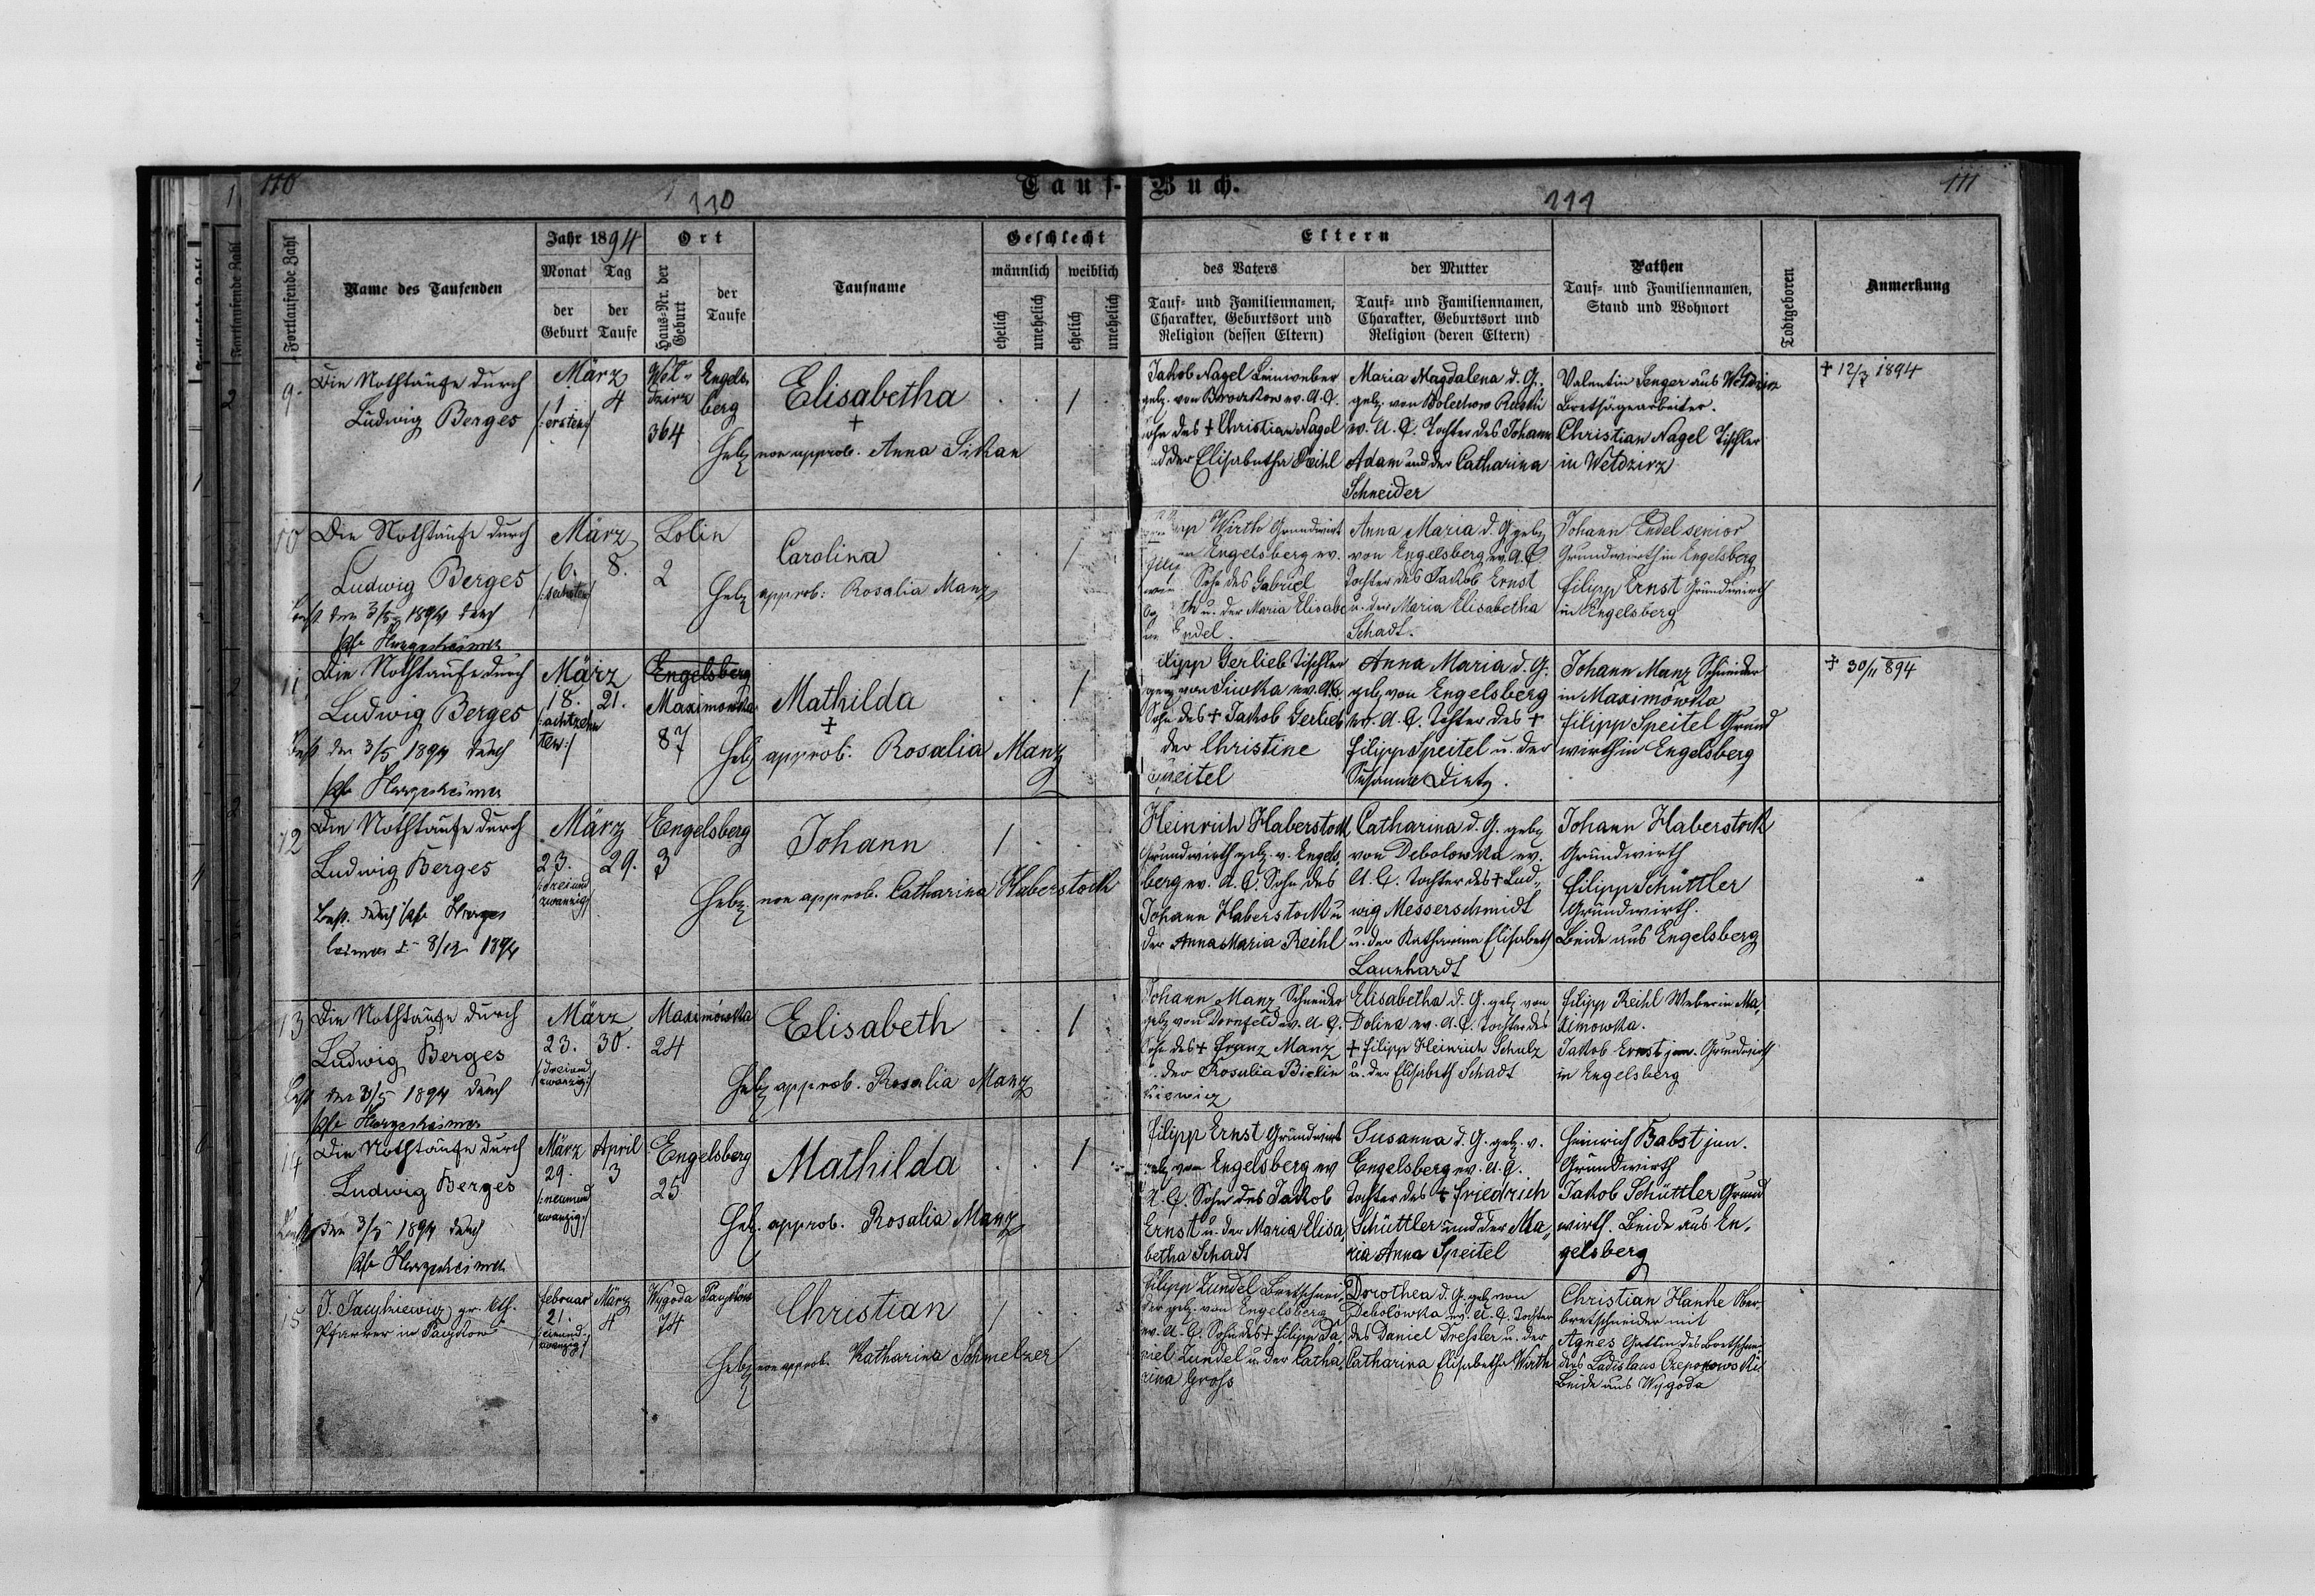 110
Tauf-
Buch.
111
110
111
Fortlaufende Zahl
Name des Taufenden
Jahr 1894
Monat
Tag
der Geburt
der Taufe
Ort
Haus-Nr. der Geburt
der Taufe
Taufname
Geschlecht
männlich
weiblich
ehelich
unehelich
ehelich
unehelich
Eltern
des Vaters
Tauf- und Familiennamen,
Charakter, Geburtsort und
Religion (dessen Eltern)
der Mutter
Tauf- und Familiennamen,
Charakter, Geburtsort und
Religion (deren Eltern)
Pathen
Tauf- und Familiennamen,
Stand und Wohnort
Todtgeboren
Anmerkung
9.
Die Nothtaufe durch
Ludwig Berges
März
1
4
/:ersten:/
Wel-
dzirz
364
Engels-
berg
Elisabetha
+
Heb. non approb. Anna Sikan
1
Jakob Nagel Leinweber
geb. von ev. A. C.
Sohn des + Christian Nagel
und der Elisabetha Reihl
Maria Magdalena d. G.
geb. von Bolechow Ruski
ev. A. C. Tochter des Johann
Adam und der Catharina
Schneider
Valentin Senger aus Weldzirz
Bretsägearbeiter.
Christian Nagel Tischler
in Weldzirz
+ 12/ 1894
10
Die Nothtaufe durch
Ludwig Berges
best. den 3/5 1894 durch
Pfr Hergesheimer
März
6.
8.
/:sechsten:/
Lolin
2
Carolina
Heb. approb: Rosalia Manz
1
Wirth Grundwirt
Engelsberg ev.
Sohn des Gabriel
u. der Maria Elisabe
Endel.
Anna Maria d. G. geb.
von Engelsberg ev. A. C.
Tochter des Jakob Ernst
u. der Maria Elisabetha
Schadt.
Johann Endel senior
Grundwirth in Engelsberg
Filipp Ernst Grundwirth
in Engelsberg
11
Die Nothtaufe durch
Ludwig Berges
Best. den 3/5 1894 durch
Pfr Hergesheimer
März
18.
21.
/:achtzehn
ten:/
Engelsberg
Maximowka
87
Mathilda
+
Heb. approb. Rosalia Manz
1
Filipp Gerlieb Tischler
geb. von Siwka ev. A. C.
Sohn des + Jakob Gerlieb
der Christine
Speitel
Anna Maria d. G.
geb. von Engelsberg
ev. A. C. Tochter des +
Filipp Speitel u. der
Susanna Dietz.
Johann Manz Schneider
in Maximówka
Filipp Speitel Grund
wirth in Engelsberg
+ 30/11 894
12
Die Nothtaufe durch
Ludwig Berges
Best. durch Pfr Herges
heimer d. 8/12 1894
März
23.
29.
/:dreiund
zwanzig:/
Engelsberg
3
Johann
Heb. non approb. Catharina Haberstock
1
Heinrich Haberstock
Grundwirth geb. v. Engels-
berg ev. A. C. Sohn des
Johann Haberstock u
der Anna Maria Reihl
Catharina d. G. geb.
von Debolowka ev.
A. C. Tochter des + Lud-
wig Messerschmidt
u. der Katharina Elisabeth
Launhardt
Johann Haberstock
Grundwirth
Filipp Schüttler
Grundwirth.
Beide aus Engelsberg
13
Die Nothtaufe durch
Ludwig Berges
Best. den 3/5 1894 durch
Pfr Hergesheimer
März
23.
30.
/:dreiund
zwanzig:/
Maximówka
24
Elisabeth
Heb. approb. Rosalia Manz
1
Johann Manz Schneider
geb. von Dornfeld ev. A. C.
Sohn des + Franz Manz
der Rosalia Bickin
kiewicz
Elisabetha d. G. geb. von
Dolina ev. A. C. Tochter des
+ Filipp Heinrich Schulz
u. der Elisabeth Schadt
Filipp Reihl Weber in Ma-
ximowka.
Jakob Ernst jun. Grundwirth
in Engelsberg
14
Die Nothtaufe durch
Ludwig Berges
Best. den 3/5 1894 durch
Pfr Hergesheimer
März
April
29.
3
/:neunund
zwanzig:/
Engelsberg
25
Mathilda
Heb. approb. Rosalia Manz
1
Filipp Ernst Grundwirt
geb. von Engelsberg ev
A. C. Sohn des Jakob
Ernst u. der Maria Elisa-
betha Schadt
Susanna d. G. geb. v.
Engelsberg ev. A. C.
Tochter des + Friedrich
Schüttler und der Ma-
ria Anna Speitel
Heinrich Babst jun.
Grundwirth
Jakob Schüttler Grund
wirth. Beide aus En-
gelsberg
15
gr. kth.
Pfarrer in
Februar
März
21.
4
/:einund-
zwanzig:/
Wygoda
74
Christian
Heb. non approb. Katharina Schmelzer
1
Filipp Zundel Bretschnei-
der geb. von Engelsberg
ev. A. C. Sohn des + Filipp Da-
niel Zundel u. der Catha-
rina Gross
Dorothea d. G. geb. von
Debolówka ev. A. C. Tochter
des Daniel Dressler u. der
Catharina Elisabetha Wirth
Christian Hanke Ober-
bretschneider mit
Agnes Gattin des Bretschnei-
ders Ladislaus
Beide aus Wygoda